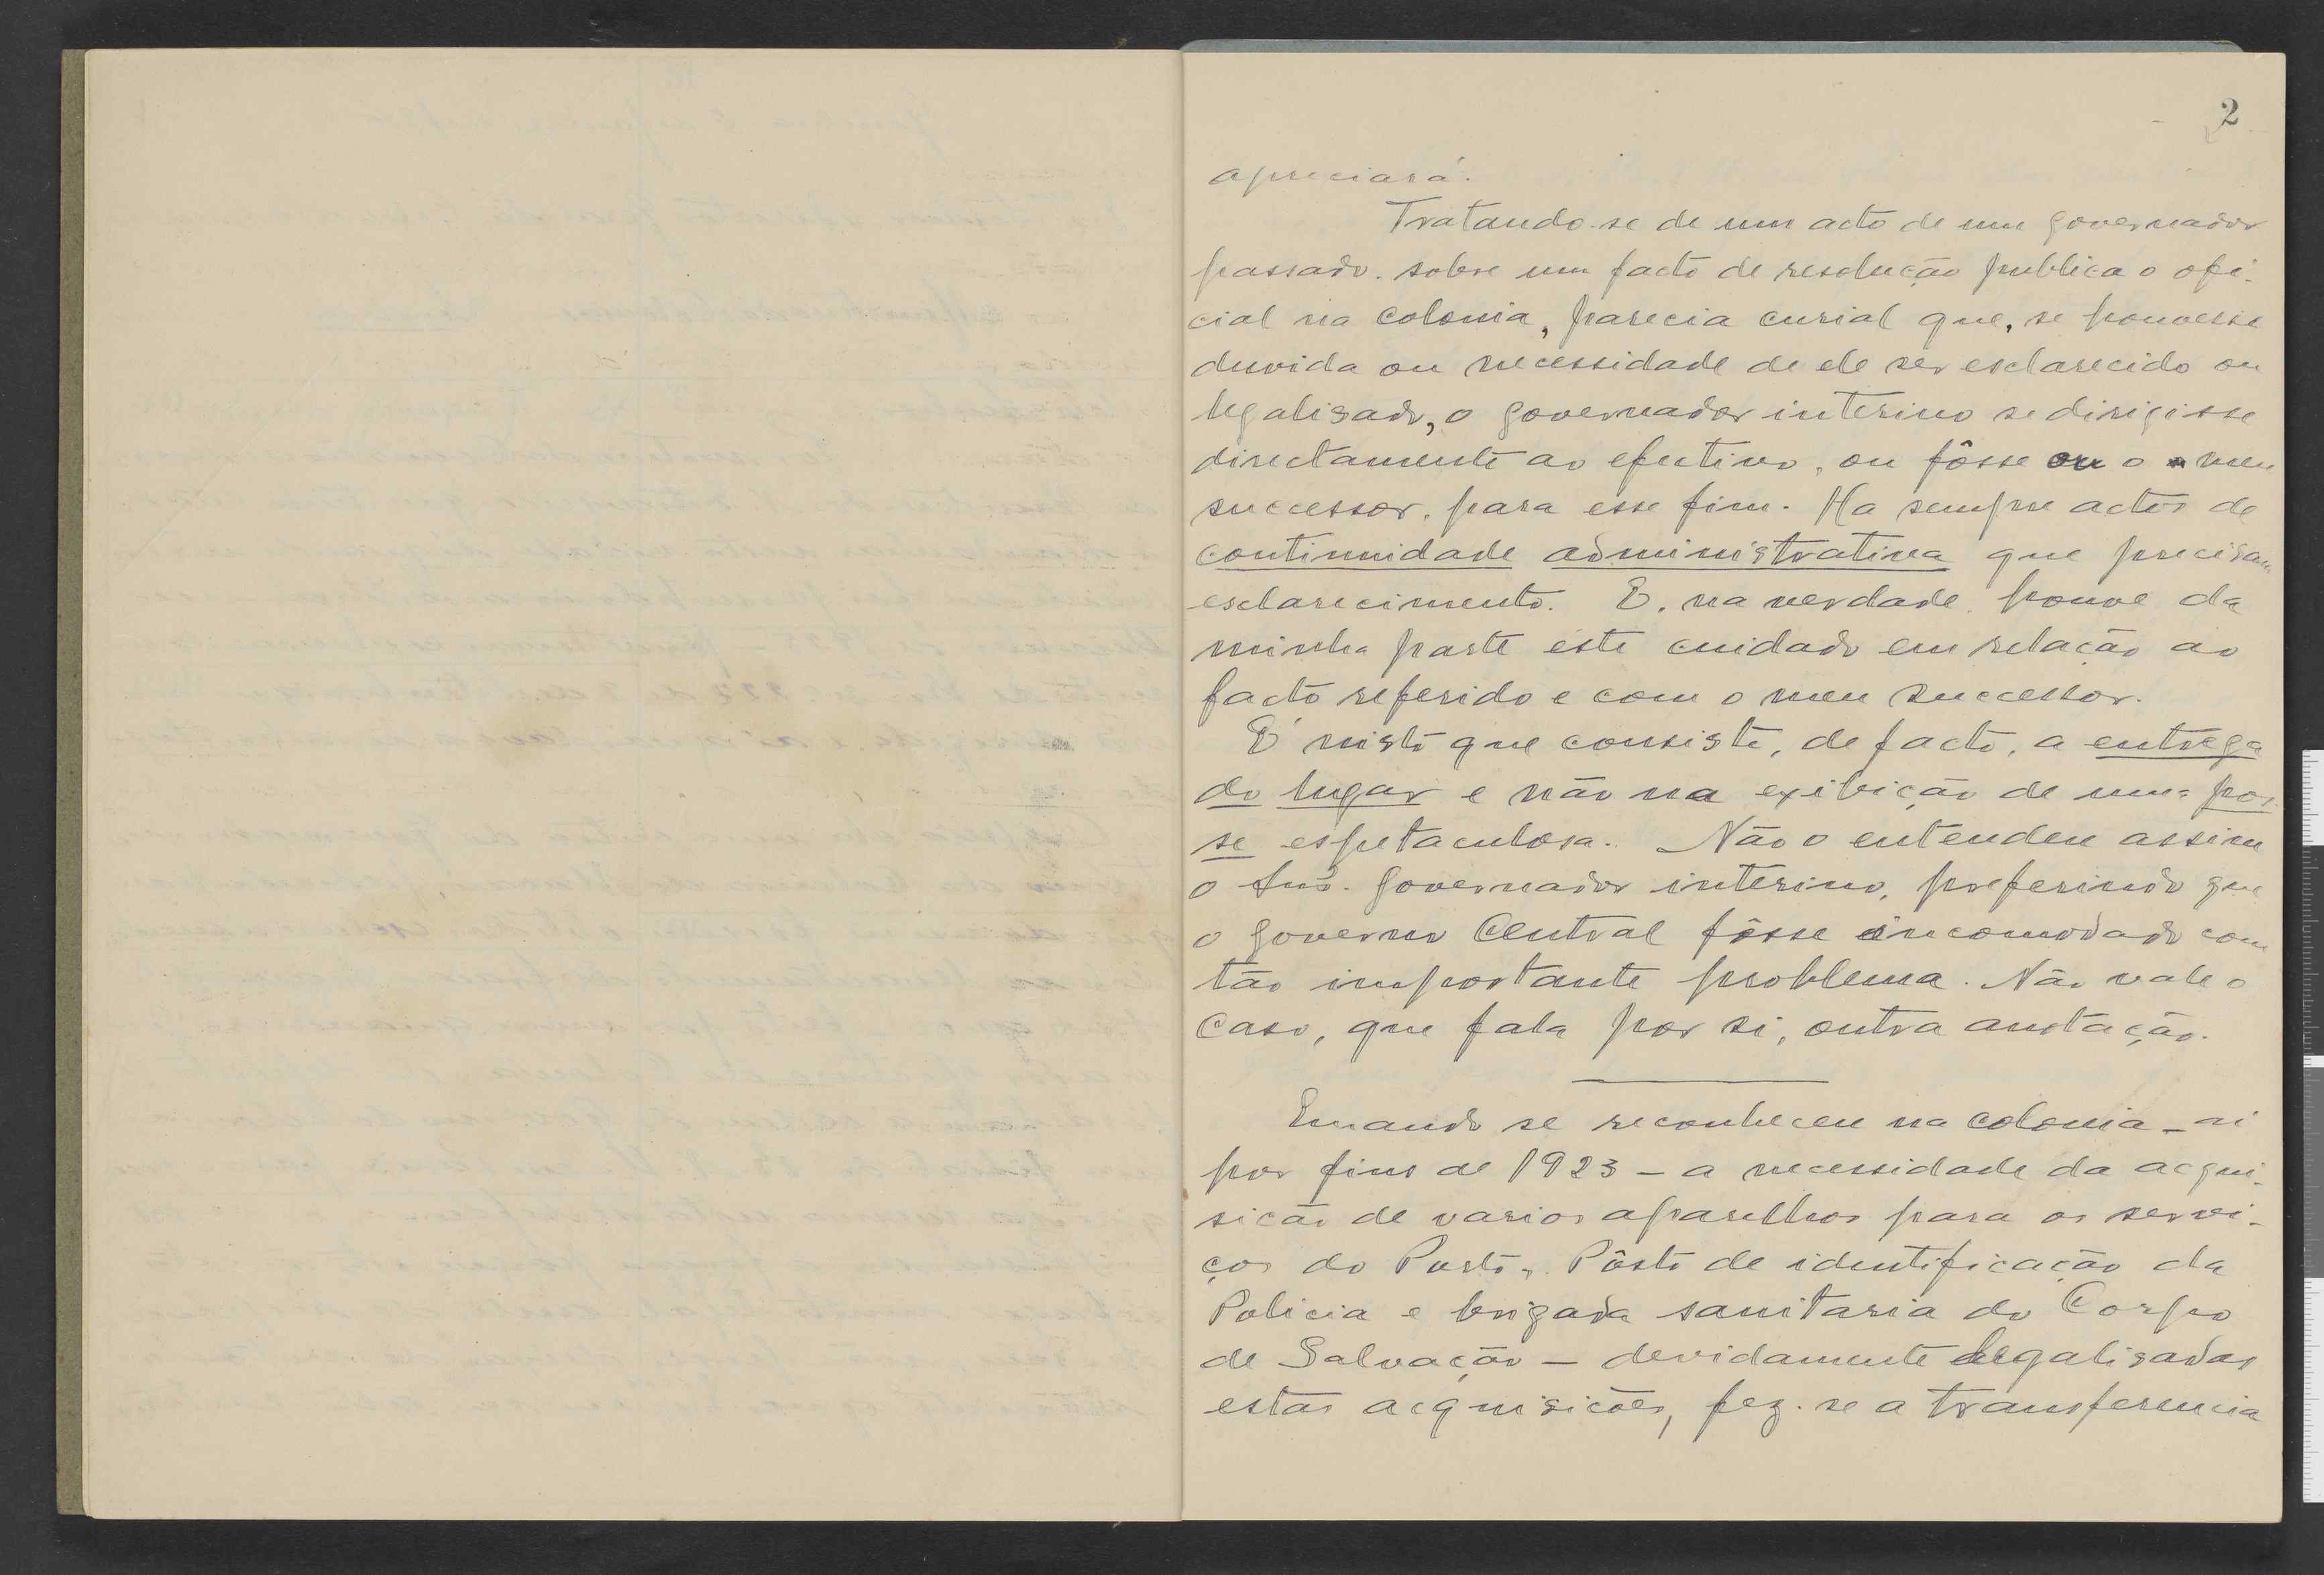 2
apreciará.
Tratando-se de um acto de um governador
passado, sobre um facto de resolução publica e ofi-
cial na colonia, parecia curial que, se houvesse
duvida ou necessidade de ele ser esclarecido ou
legalisado, o governador interino se dirigisse
directamente ao efectivo, ou fôsse ou o meu
successor, para esse fim. Ha sempre actos de
continuidade administrativa que precisam
esclarecimento. E, na verdade, houve da
minha parte este cuidado em relação ao
facto referido e com o meu successor.
É nisto que consiste, de facto, a entrega
do lugar e não na exibição de uma pos-
se espetaculosa. Não o entendeu assim
o Snr. Governador interino, preferindo que
o Governo Central fôsse incomodado com
tão importante problema. Não vale o
caso, que fala por si, outra anotação.
se reconheceu na colonia - aí
por fins de 1923 - a necessidade da acqui-
sicão de varios aparelhos para os servi-
ços do Porto, Pôsto de identificação da
Policia e brigada sanitaria do Corpo
de Salvação - devidamente legalisadas
estas acquisicões, fez-se a transferencia